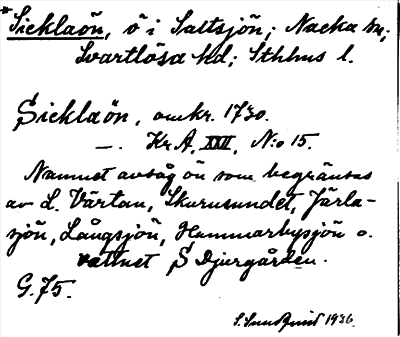 *Sicklaön, ö i Saltsjön; Nacka sn;
Svartlösa hd; Sthlms l.
Sicklaön, omkr. 1730.
—. Kr A, XXII, N:o 15.
Namnet avsåg ön som begränsas
av L. Värtan, Skurusundet, Järla-
sjön, Långsjön, Hammarbysjön o.
vattnet S Djurgården.
G. 75.
S. Sundquist 1936.